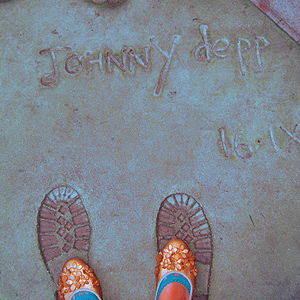 JOHNNY depp
16.IX